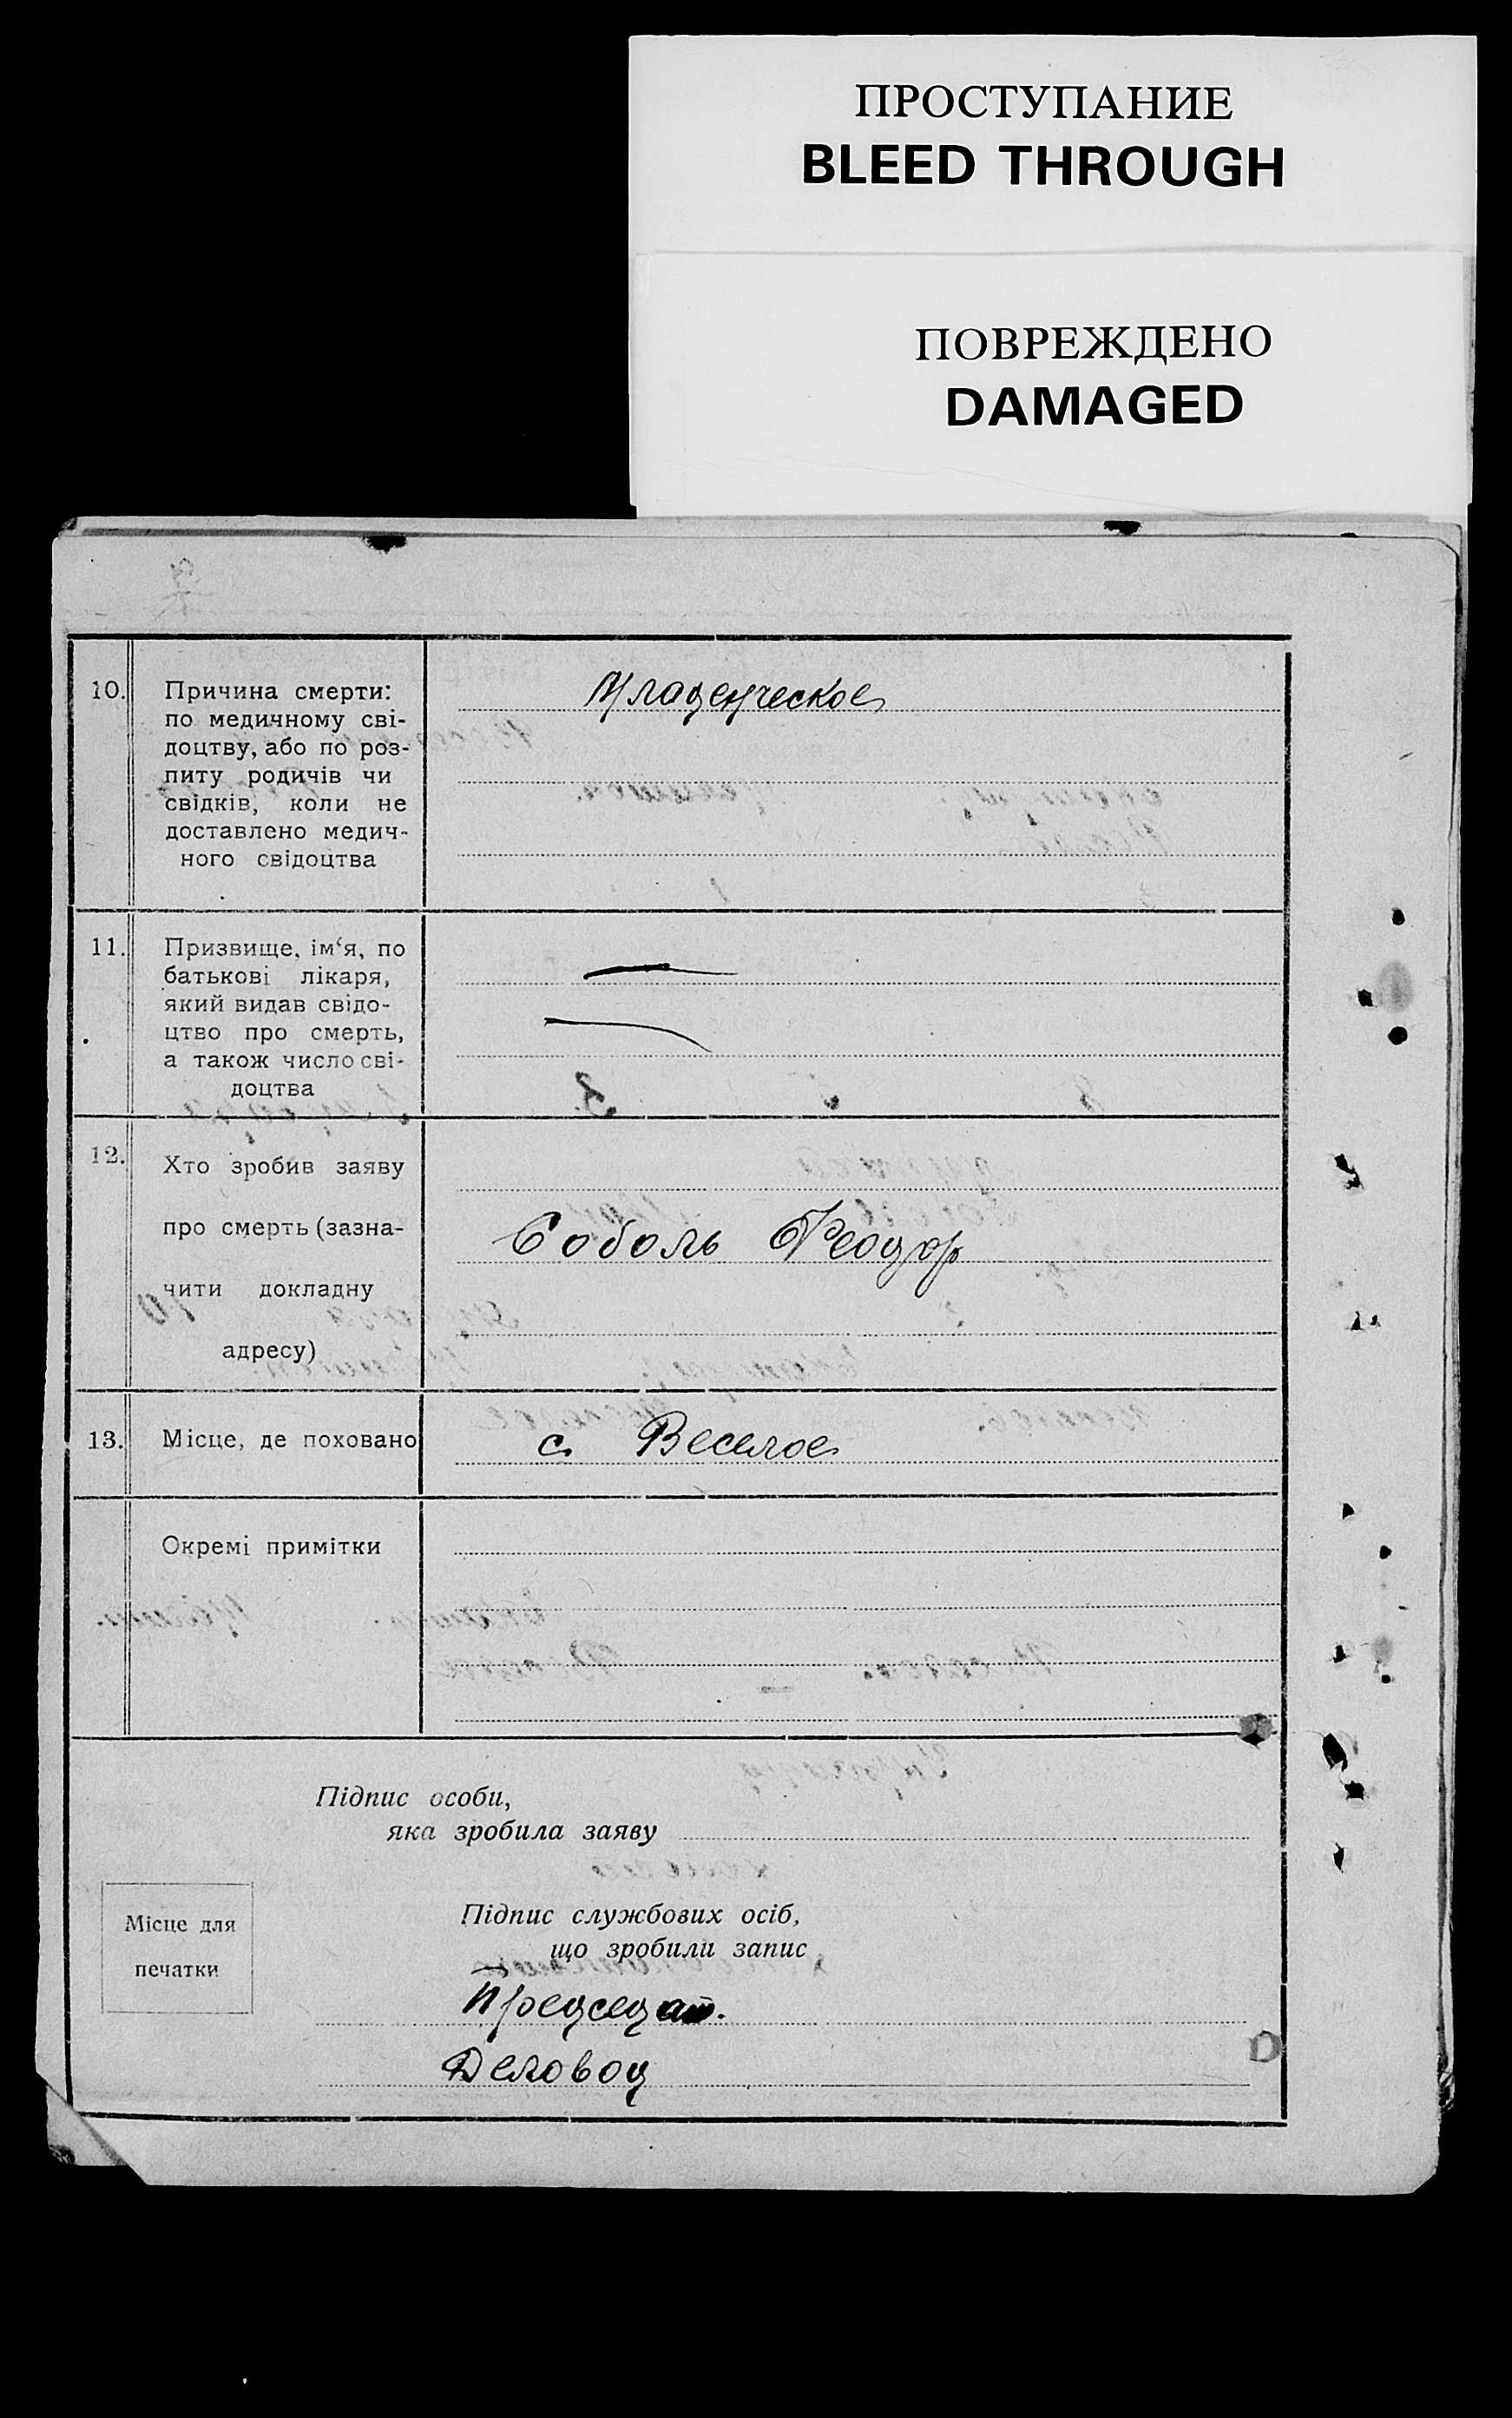 ПРОСТУПАНИЕ
BLEED THROUGH
ПОВРЕЖДЕНО
DAMAGED
10. Причина смерти:
по медичному сві-
доцтву, або по роз-
питу родичів чи
свідків, коли не
доставлено медич-
ного свідоцтва
Младенческое
11. Призвище, ім‘я, по
батькові лікаря,
який видав свідо-
цтво про смерть,
а також число сві-
доцтва
12. Хто зробив заяву
про смерть (зазна-
чити докладну
адресу)
Соболь Феодор
13. Місце, де поховано
с. Веселое
Окремі примітки
Підпис особи,
яка зробила заяву
Підпис службових осіб,
що зробили запис
Місце для
печатки
Председат.
Деловод